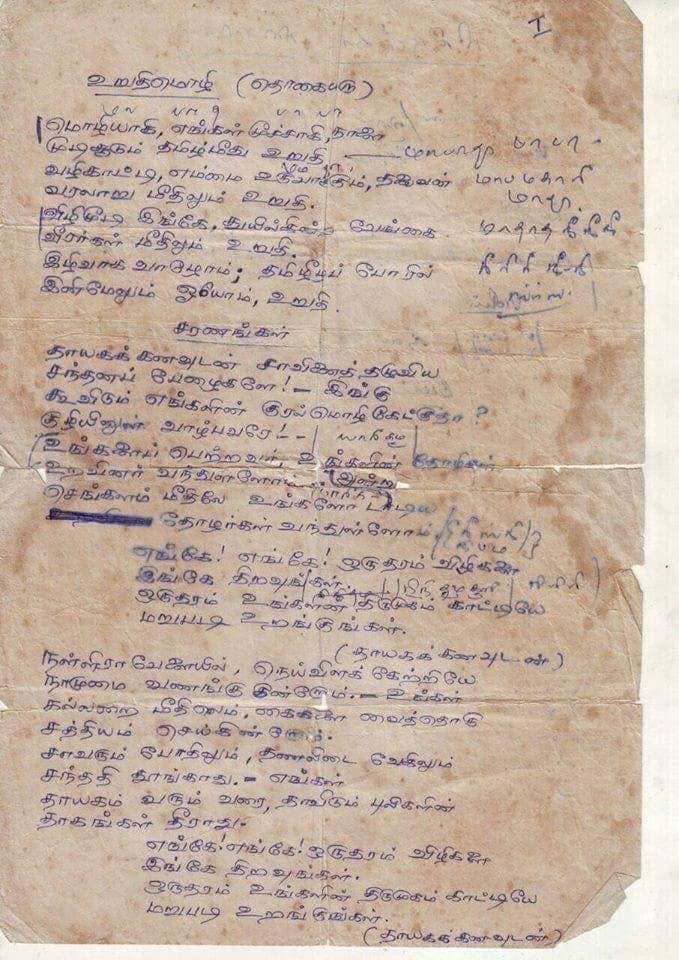 I
உறுதிமொழி (தொகையறு)
மொழியாகி, எங்கள் மூச்சாகி, நாளை
முடிசூடும் தமிழ்மீது உறுதி
வழிகாட்டி, எம்மை உருவாக்கும், தலைவன்
வரலாறு மீதிலும் உறுதி.
விழிமூடி இங்கே, துயில்கின்ற வேங்கை
வீரர்கள் மீதிலும் உறுதி.
இழிவாக வாழோம்; தமிழீழப் போரில்
இனிமேலும் ஓயோம், உறுதி.
சரணங்கள்
தாயகக் கனவுடன் சாவினைத் தழுவிய
சந்தனப் பேழைகளே! - இங்கு
கூவிடும் எங்களின் குரல்மொழி கேட்குதா?
குழியினுள் வாழ்பவரே! -
உங்களைப் பெற்றவர், உங்களின் தோழிகள்
உறவினர் வந்துள்ளோம் - அன்று
செங்களம் மீதிலே உங்களோடாடிய
தோழர்கள் வந்துள்ளோம்
எங்கே! எங்கே! ஒருதரம் விழிகளை
இங்கே திறவுங்கள்.
ஒருதரம் உங்களின் திருமுகம் காட்டியே
மறுபடி உறங்குங்கள்.
(தாயகக் கனவுடன்)
நள்ளிரா வேளையில், நெய்விளக் கேற்றியே
நாமுமை வணங்கு கின்றோம். - உங்கள்
கல்லறை மீதிலெம், கைகளை வைத்தொரு
சத்தியம் செய்கின்றோம்.
சாவரும் போதிலும், தணலிடை வேகிலும்
சந்ததி தூங்காது. - எங்கள்
தாயகம் வரும் வரை, தாவிடும் புலிகளின்
தாகங்கள் தீராது.
எங்கே! எங்கே! ஒருதரம் விழிகளை
இங்கே திறவுங்கள்.
ஒருதரம் உங்களின் திருமுகம் காட்டியே
மறுபடி உறங்குங்கள்.
(தாயகக் கனவுடன்)